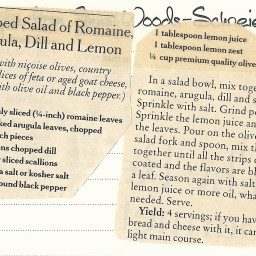 Doods-Salm
ped Salad of Romaine,
gula, Dill and Lemon
with niçoise olives, country
lices of feta or aged goat cheese,
with olive oil and black pepper.)
ly sliced (¼-inch) romaine leaves
ked arugula leaves, chopped
ch pieces
ons chopped dill
ly sliced scallions
a salt or kosher salt
ound black pepper
1 tablespoon lemon juice
1 tablespoon lemon zest
¼ cup premium quality olive
In a salad bowl, mix toge
romaine, arugula, dill and s
Sprinkle with salt. Grind p
Sprinkle the lemon juice an
the leaves. Pour on the oliv
salad fork and spoon, mix th
together until all the strips
coated and the flavors are bl
a leaf. Season again with salt
lemon juice or more oil, wha
needed. Serve.
Yield: 4 servings; if you hav
bread and cheese with it, it can
light main course.